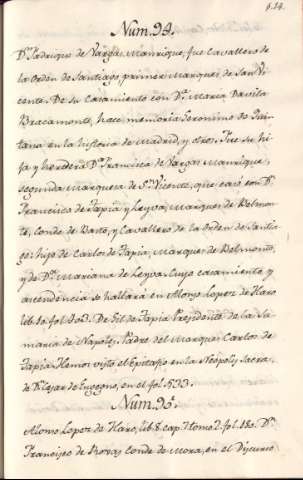 Num. 94.
Dⁿ Fadrique de Vargas Manrique, fue Cavallero de
la Orden de Santiago primer Marques de San Vi-
cente. De su Casamiento con Dª Maria Davila
Bracamonte, hace memoria Jeronimo de Quin-
tana en la historia de Madrid, y otros. Fue su hi-
ja y heredera Dª Francisca de Vargas Manrique,
segunda Marquesa de Sⁿ Vicente, que casó con Dⁿ
Francisco de Tapia y Leyva, Marques de Belmon-
te, Conde de Basto, y Cavallero de la Orden de Santia-
go: hijo de Carlos de Tapia, Marques de Belmonte,
y de Dª Mariana de Leyva. Cuyo casamiento y
ascendencia se hallara en Alonso Lopez de Haro
lib. 10. fol. De Gil de Tapia Presidente de la Su-
maria de Napoles, Padre del Marques Carlos de
Tapia. Hemos visto el Epitafio en la Neapoli Sacra,
de Dⁿ Cesar de Eugenio, en el fol. 533.
Num. 95.
Alonso Lopez de Haro, lib. 8. cap. 7. tomo 2. fol. 180. Dⁿ
Francisco de Rojas Conde de Mora, en el Discurso